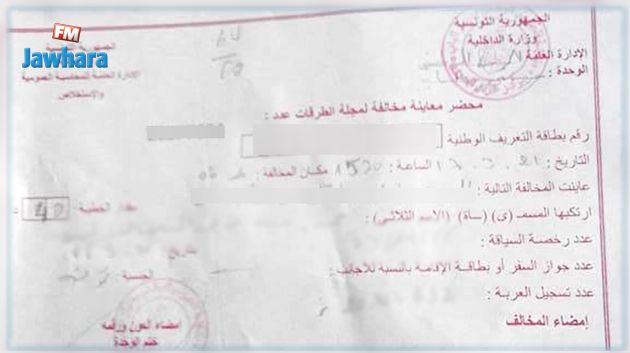 FM
Jawhara
الجمهورية التونسية
وزارة الداخلية
الإدارة العامة
الوحدة :
الجمهورية التونسية
الإدارة العامة للمحاسبة العمومية
والإستخلاص
محضر معاينة مخالفة لمجلة الطرقات عدد :
رقم بطاقة التعريف الوطنية
التاريخ : الساعة : 1530 مكان المخالفة :
عاينت المخالفة التالية :
ارتكبها المسمـ (ى) (ساة) (الاسم الثلاثي) :
مقدار الخطية : 40
عدد رخصة السياقة :
عدد جواز السفر أو بطاقة الإقامة بالنسبة للأجانب :
عدد تسجيل العربة :
إمضاء المخالف
إمضاء العون ورقمه
ختم الوحدة